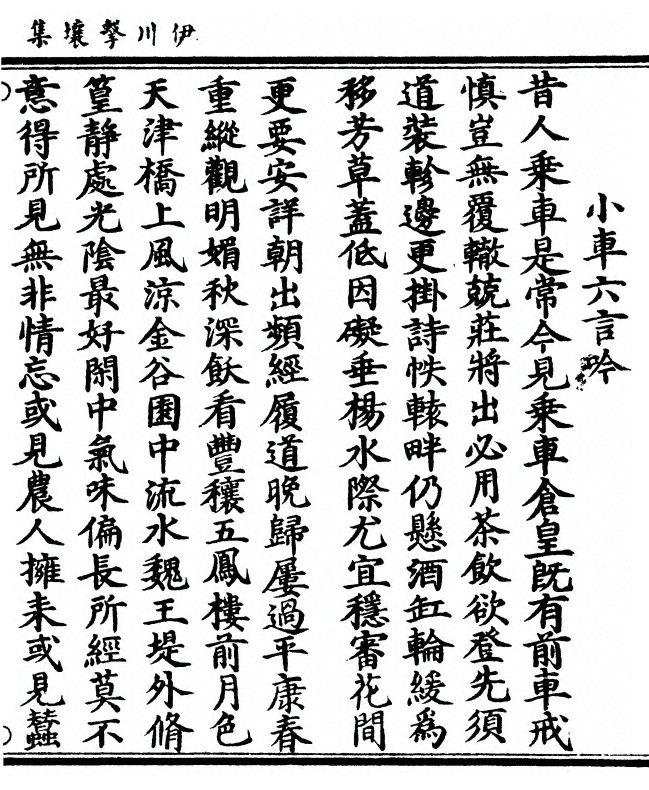 伊川擊壤集
小車六言吟
昔人乗車是常今見乗車倉皇既有前車戒
慎豈無覆轍兢莊將出必用茶飲欲登先須
道裝軫邊更掛詩帙轅畔仍懸酒缸輪緩爲
移芳草蓋低因礙垂楊水際尤宜穩審花間
更要安詳朝出頻經履道晚歸屢過平康春
重縱觀明媚秋深飫看豐穰五鳳樓前月色
天津橋上風涼金谷園中流水魏王堤外脩
篁靜處光陰最好閑中氣味偏長所經莫不
意得所見無非情忘或見農人擁耒或見蠶